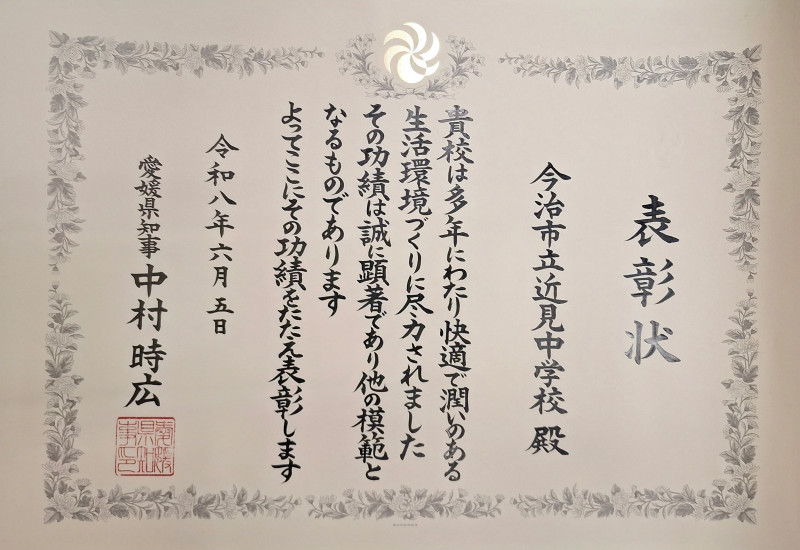 表彰状
今治市立近見中学校 殿
貴校は多年にわたり快適で潤いのある
生活環境づくりに尽力されました
その功績は誠に顕著であり他の模範と
なるものであります
よってここにその功績をたたえ表彰します
令和八年六月五日
愛媛県知事 中村時広
愛媛県知事印